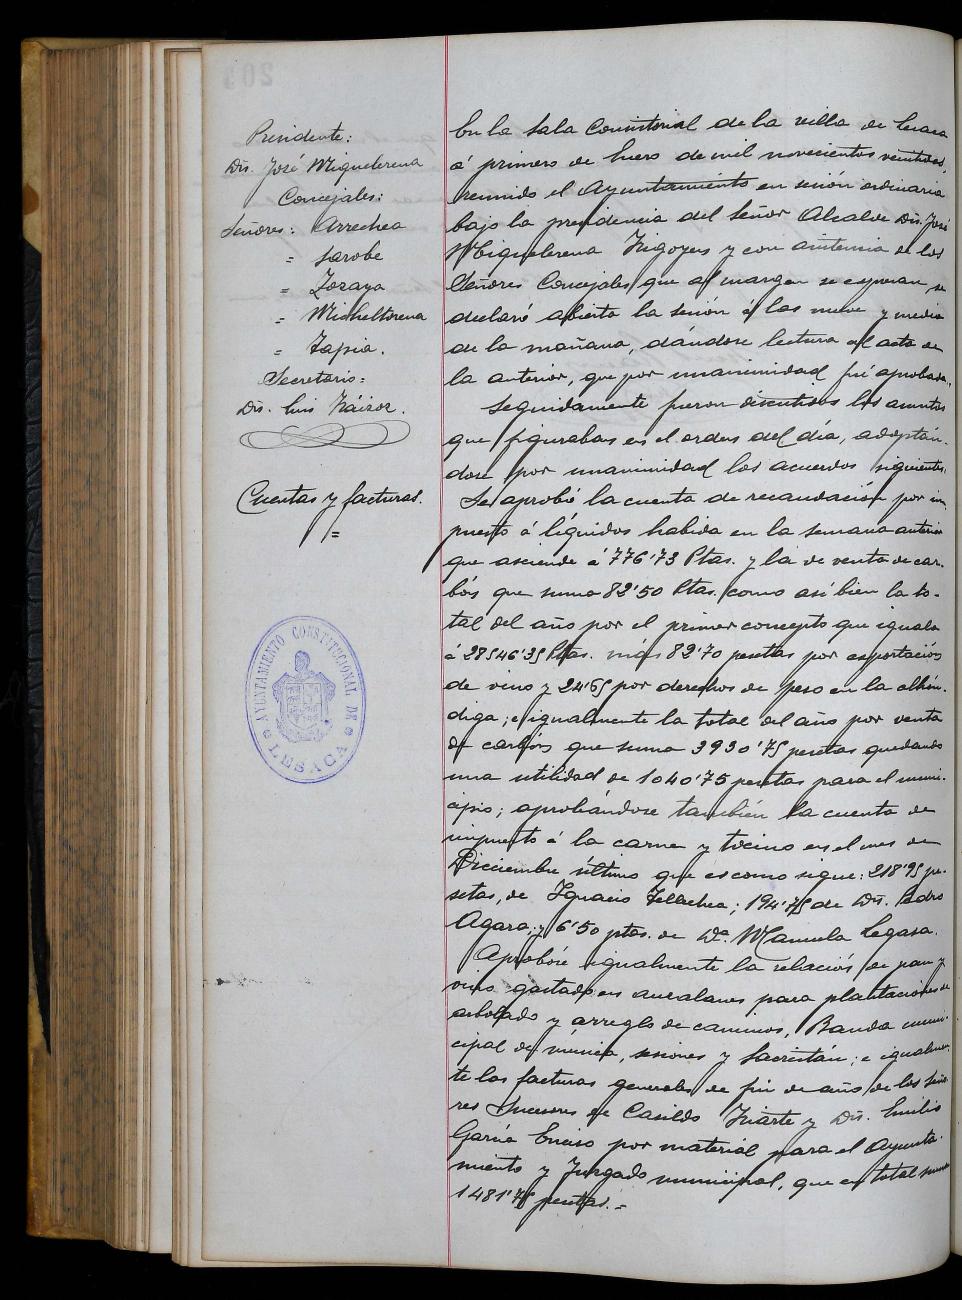 Presidente:
Dn. José Miguelerena
Concejales:
Señores: Arrechea
" Sarobe
" Zozaya
" Micheltorena
" Tapia.
Secretario:
Dn. Luis
Cuentas y facturas.
=
AYUNTAMIENTO CONSTITUCIONAL DE
LESACA
En la Sala Consistorial de la villa de Lesaca
á primero de Enero de mil novecientos veintidos,
reunido el Ayuntamiento en sesión ordinaria
bajo la presidencia del Señor Alcalde Dn. José
Miguelerena Irigoyen y con asistencia de los
Señores Concejales que al margen se expresan, se
declaró abierta la sesión á las nueve y media
de la mañana, dándose lectura al acta de
la anterior, que por unanimidad fué aprobada.
Seguidamente fueron discutidos los asuntos
que figuraban en el orden del día, adoptán-
dose por unanimidad los acuerdos siguientes.
Se aprobó la cuenta de recaudación por im-
puesto á líquidos habida en la semana anterior
que asciende á 776'73 Ptas. y la de venta de car-
bón que suma 82'50 Ptas. como asi bien la to-
tal del año por el primer concepto que iguala
á 28546'35 Ptas. más 82'70 pesetas por exportación
de vino y 24'65 por derechos de peso en la alhón-
diga; e igualmente la total del año por venta
de carbón que suma 3930'75 pesetas quedando
una utilidad de 1040'75 pesetas para el muni-
cipio; aprobándose también la cuenta de
impuesto á la carne y tocino en el mes de
Diciembre último que es como sigue: 218'95 pe-
setas, de Ignacio Tellechea; 194'75 de Dn. Pedro
Agara; y 6'50 ptas. de Da. Manuela Legasa.
Aprobóse igualmente la relación de pan y
vino gastado en auzalanes para plantaciones de
arbolado y arreglo de caminos, Banda muni-
cipal de música, sesiones y Sacristán; e igualmen-
te las facturas generales de fin de año de los Seño-
res Sucesores de Casildo Iriarte y Dn. Emilio
García Enciso por material para el Ayunta-
miento y Juzgado municipal, que en total suman
1481'75 pesetas.=